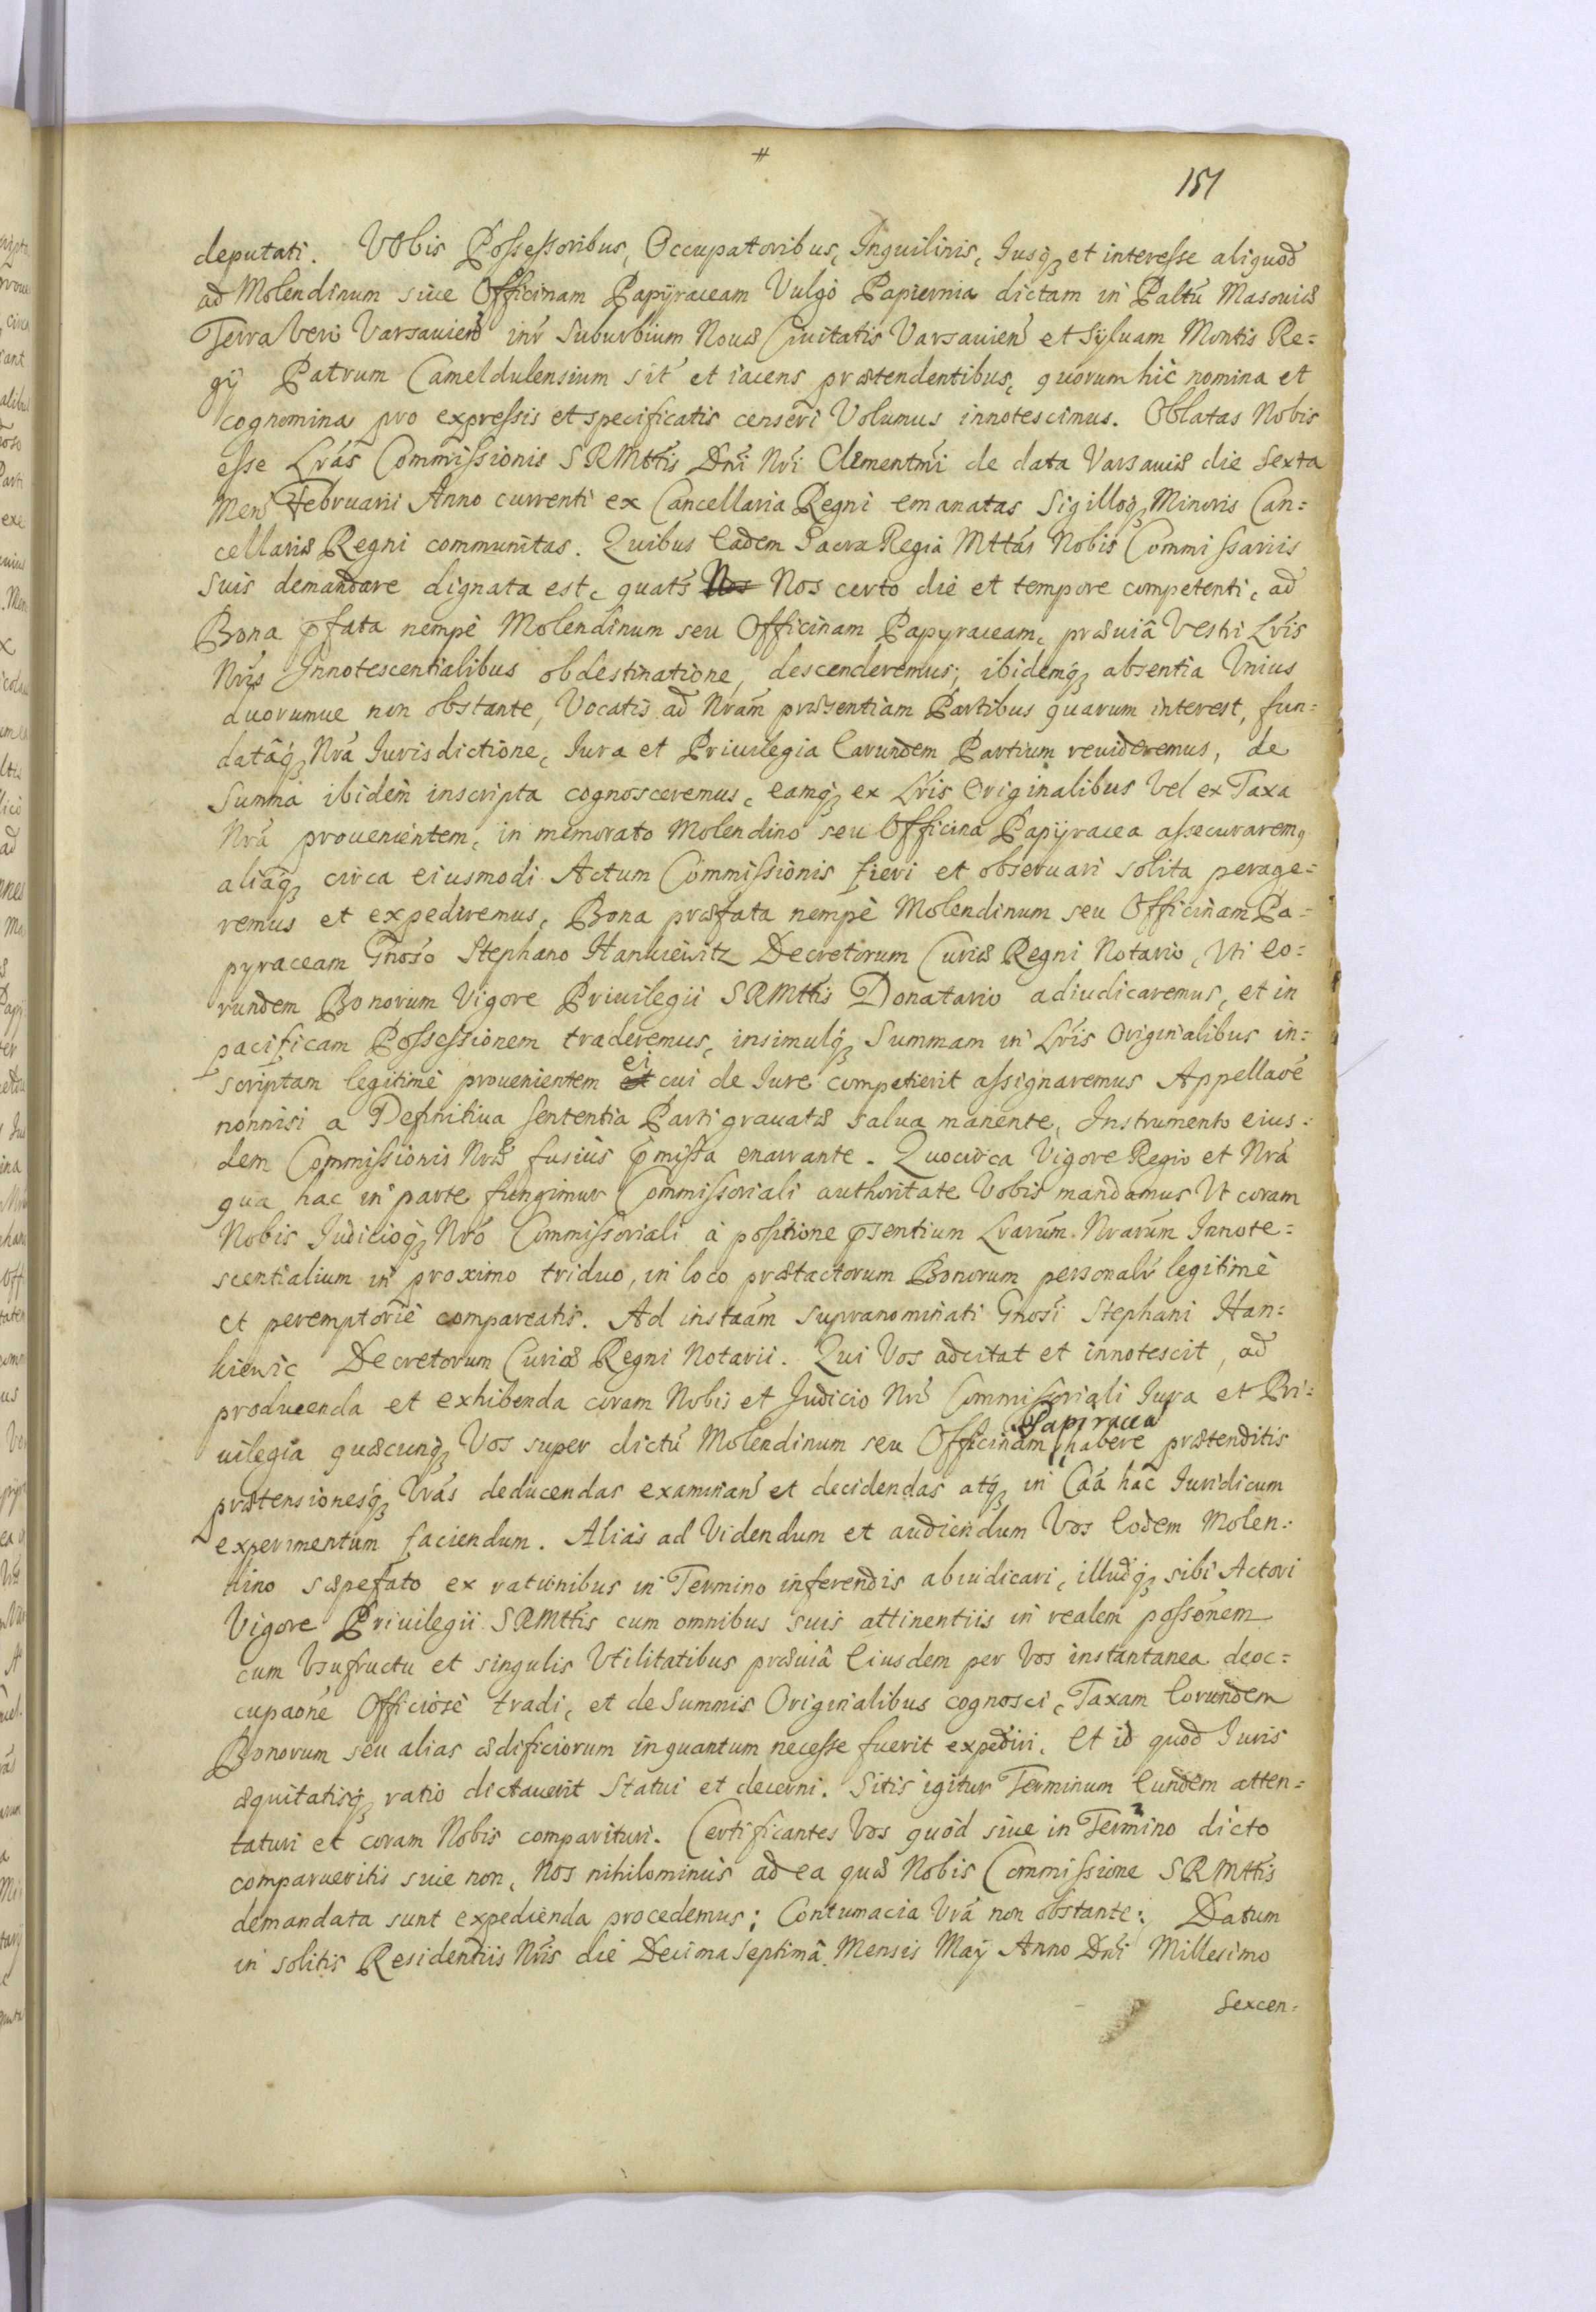 #
151
deputati. Vobis Possessoribus, Occupatoribus, Inquilinis, Iusq₃ et interesse aliquod
ad Molendinum siue Officinam Papÿraceam Vulgò Papiernia dictam in Paltũ Masouiæ
Terra Vero Varsauien̄ int̄ Suburbium Nouæ Ciuitatis Varsauien̄ et Sÿluam Montis Re=
gÿ Patrum Cameldulensium sit̄ et iacens prætendentibus, quorum hic nomina et
cognomina pro expressis et specificatis censeri Volumus innotescimus. Oblatas Nobis
esse Lrãs Commissionis SRMttis Dni Nri Clementmi de data Varsauiæ die Sexta
Mens̄ Februarii Anno currenti ex Cancellaria Regni emanatas Sigilloq₃ Minoris Can=
cellariæ Regni communitas. Quibus Eadem Sacra Regia Mttas Nobis Commissariis
Suis demandare dignata est, quats̄ Nos Nos certo die et tempore competenti, ad
Bona pfata nempè Molendinum seu Officinam Papyraceam, præuiâ Vestri Lris
Nris Innotescentialibus obdestinatione, descenderemus; ibidemq₃ absentia Vnius
duorumue non obstante, Vocatis ad Nram præsentiam Partibus quarum interest, fun=
datâq₃ Nra Iurisdictione, Iura et Priuilegia Earundem Partium reuideremus, de
Summa ibidem inscripta cognosceremus, eamq₃ ex Lris Originalibus Vel ex Taxa
Nra prouenientem, in memorato Molendino seu Officina Papÿracea assecuraremꝰ
aliaq₃ circa eiusmodi Actum Commissionis fieri et obseruari solita perage=
remus et expediremus, Bona præfata nempè Molendinum seu Officinam Pa=
pyraceam Gnoso Stephano Hankiewitz Decretorum Curiæ Regni Notario, Vti Eo=
rundem Bonorum Vigore Priuilegii SRMttis Donatario adiudicaremus, et in
pacificam Possessionem traderemus, insimulq₃ Summam in Lris Originalibus in=
scriptam legitimè prouenientem et ei cui de Iure competierit assignaremus Appellaoe
nonnisi a Definitiua sententia Parti grauatæ salua manente, Instrumento eius=
dem Commissionis Nræ fusius pmissa enarrante. Quocirca Vigore Regio et Nra
qua hac in parte fungimur Commissoriali authoritate Vobis mandamus Vt coram
Nobis Iudicioq₃ Nro Commissoriali à positione psentium Lrarum Nrarum Innote=
scentialium in proximo triduo, in loco prætactorum Bonorum personalr̄ legitimè
et peremptoriè compareatis. Ad instaam supranominati Gnosi Stephani Han=
kiewic Decretorum Curiæ Regni Notarii. Qui Vos adcitat et innotescit, ad
producenda et exhibenda coram Nobis et Iudicio Nro Commissoriali Iura et Pri=
uilegia quæcunq₃ Vos super dictũ Molendinum seu Officinam Papiraceã habere prætenditis
prætensionesq₃ Vras deducendas examinan̄ et decidendas atq₃ in Caa hac Iuridicum
experimentum faciendum. Aliàs ad Videndum et audiendum Vos Eodem Molen=
dino sæpefato ex rationibus in Termino inferendis abiudicari, illudq₃ sibi Actori
Vigore Priuilegii SRMttis cum omnibus suis attinentiis in realem possonem
cum Vsufructu et singulis Vtilitatibus præuiâ Eiusdem per Vos instantanea deoc=
cupaone Officiosè tradi, et de Summis Originalibus cognosci, Taxam Eorundem
Bonorum seu alias ædificiorum inquantum necesse fuerit expediri. Et id quod Iuris
æquitatisq₃ ratio dictauerit Statui et decerni. Sitis igitur Terminum Eundem atten=
taturi et coram Nobis comparituri. Certificantes Vos quod siue in Termino dicto
comparueritis siue non, Nos nihilominus ad ea quæ Nobis Commissione SRMttis
demandata sunt expedienda procedemus; Contumacia Vra non obstante. Datum
in solitis Residentiis Nris die Decima Septimâ Mensis Maÿ Anno Dni Millesimo
Sexcen=